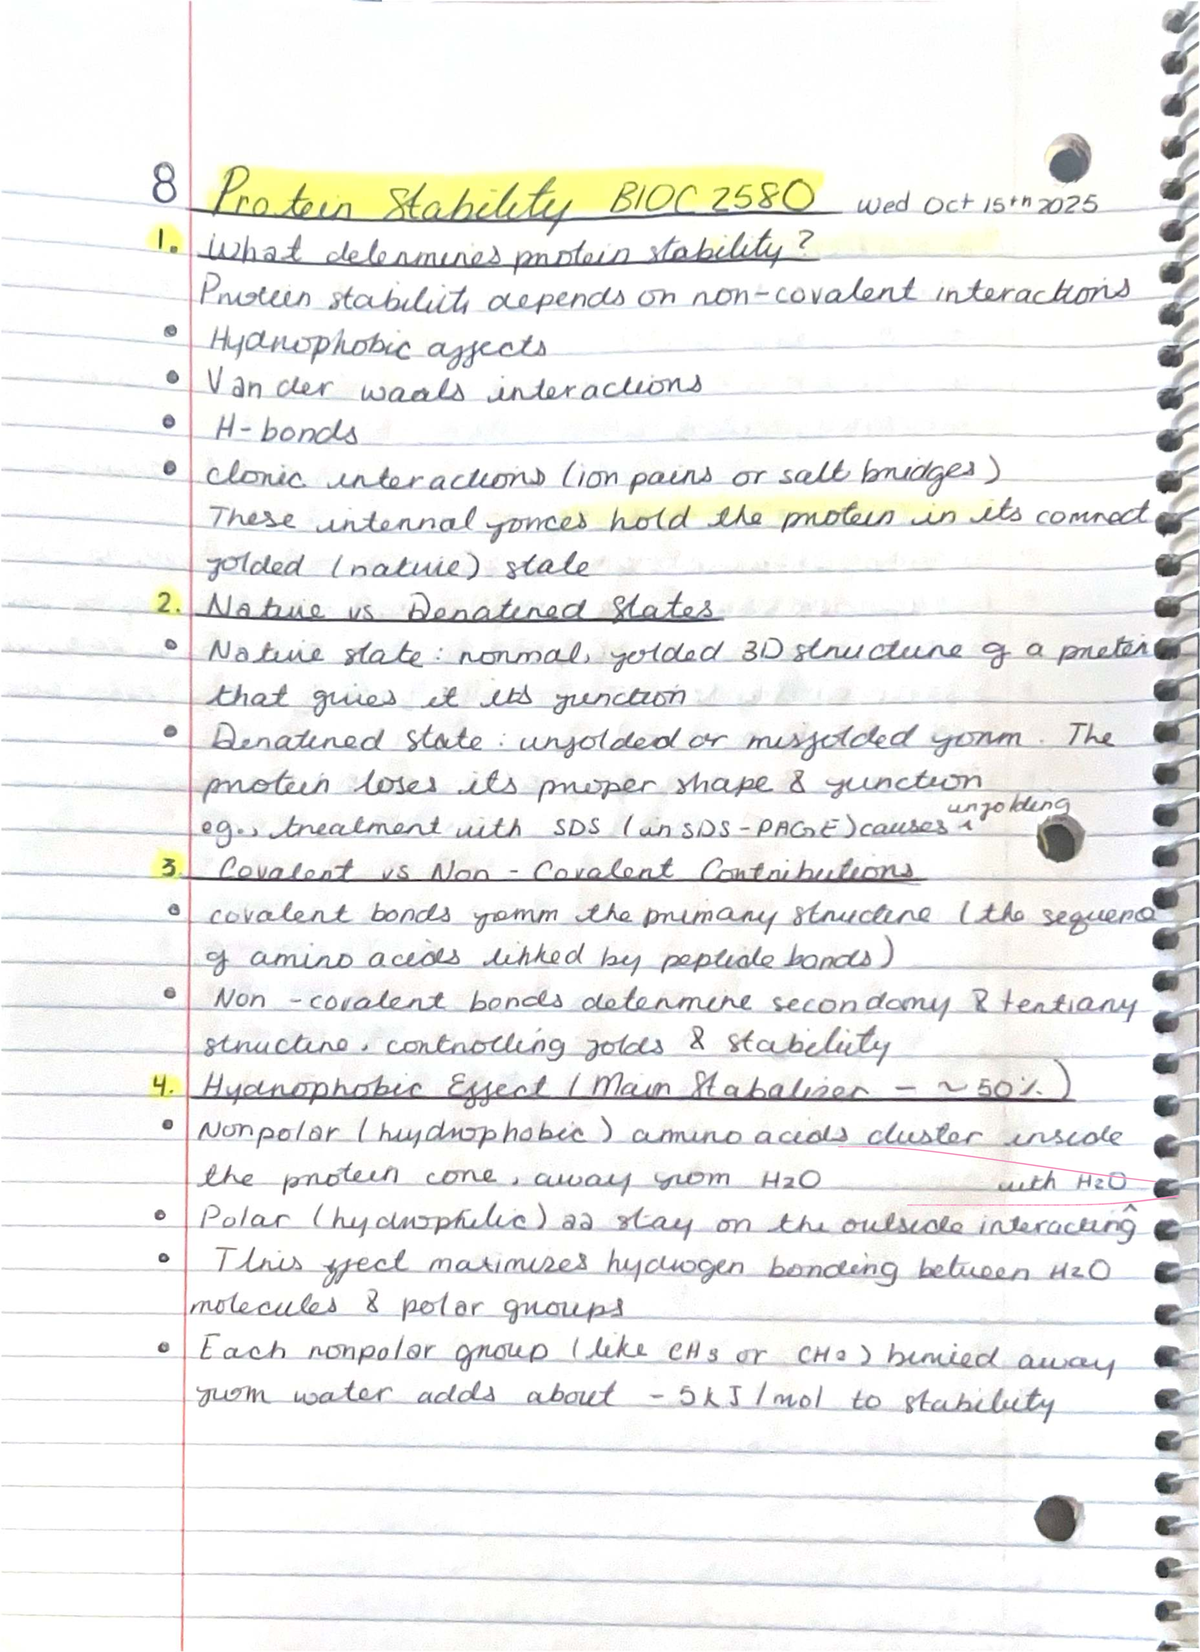 8 Protein Stability BIOC 2580 Wed Oct 15th 2025
1. What determines protein stability?
Protein stability depends on non-covalent interactions
• Hydrophobic affects
• Van der waals interactions
• H-bonds
• Ionic interactions (ion pairs or salt bridges)
These internal forces hold the protein in its correct
folded (native) state
2. Native vs Denatured States
• Native state: normal, folded 3D structure of a protein
that gives it its function
• Denatured state: unfolded or misfolded form. The
protein loses its proper shape & function
unfolding
eg., treatment with SDS (in SDS-PAGE) causes ^
3. Covalent vs Non-Covalent Contributions
• covalent bonds form the primary structure (the sequence
of amino acids linked by peptide bonds)
• Non-covalent bonds determine secondary & tertiary
structure, controlling folds & stability
4. Hydrophobic Effect (Main Stabaliser - ~50%)
• Nonpolar (hydrophobic) amino acids cluster inside
the protein core, away from H2O
with H2O
• Polar (hydrophilic) aa stay on the outside interacting^
• This effect maximizes hydrogen bonding between H2O
molecules & polar groups
• Each nonpolar group (like CH3 or CH2) buried away
from water adds about -5kJ/mol to stability